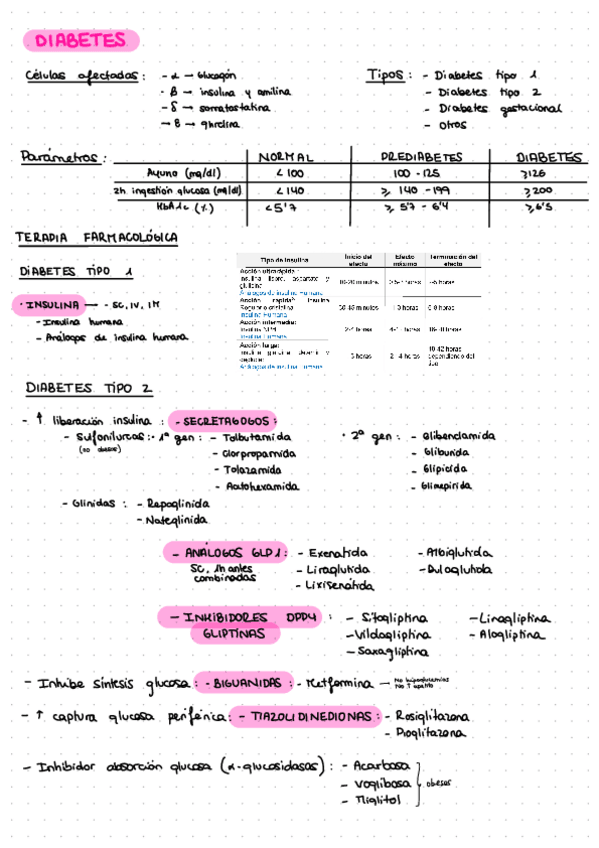 DIABETES
Células afectadas : - α → Glucagón
- β → insulina y amilina
- δ → somatostatina
→ B → ghrelina
Tipos : - Diabetes tipo 1
- Diabetes tipo 2
- Diabetes gestacional
- Otros
Parámetros : NORMAL PREDIABETES DIABETES
Ayuno (mg/dl) < 100 100 - 125 ≥126
2h ingestión glucosa (mg/dl) < 140 ≥ 140 - 199 ≥ 200
HbA1c (%) < 5'7 ≥ 5'7 - 6'4 ≥ 6'5
TERAPIA FARMACOLÓGICA
DIABETES TIPO 1
· INSULINA → - SC, IV, IM
- Insulina humana
- Análogos de insulina humana
Tipo de insulina Inicio del efecto Efecto máximo Terminación del efecto
Acción ultrarápida
Análogos de insulina Humana
Acción rápida Insulina
Insulina Humana
Acción intermedia:
Insulina Humana
Acción larga:
Análogos de insulina Humana
DIABETES TIPO 2
- ↑ liberación insulina : - SECRETAGOGOS :
- Sulfonilureas : · 1ª gen : - Tolbutamida
(no obesos)
- Clorpropamida
- Tolazamida
- Acetohexamida
· 2ª gen : - Glibenclamida
- Gliburida
- Glipicida
- Glimepirida
- Glinidas : - Repaglinida
- Nateglinida
- ANÁLOGOS GLP1 : - Exenatida - Albiglutida
- Liraglutida - Dulaglutida
combinadas - Lixisenatida
- INHIBIDORES DPP4 : - Sitagliptina - Linagliptina
GLIPTINAS - Vildagliptina - Alogliptina
- Saxagliptina
- Inhibe síntesis glucosa : - BIGUANIDAS : - Metformina - No hipoglucemias
- ↑ captura glucosa periférica : - TIAZOLIDINEDIONAS : - Rosiglitazona
- Pioglitazona
- Inhibidor absorción glucosa (α-glucosidasas) : - Acarbosa
- Voglibosa obesos
- Miglitol